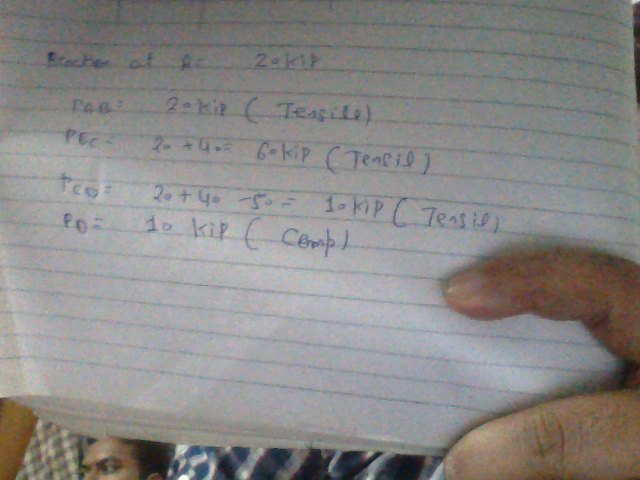 Reaction at A= 20kip
PAB= 20kip ( Tensile)
PBC= 20 +40= 60kip ( Tensil)
PCD= 20+40 -50= 10kip ( Tensil)
PD= 10 kip ( Comp)